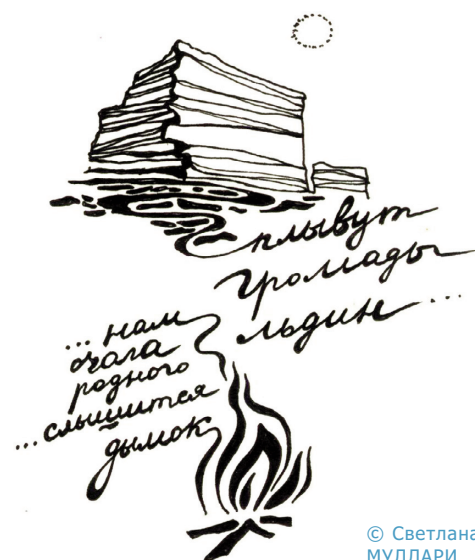 плывут
громады
льдин...
...нам
очага
родного
...слышится
дымок
© Светлана
МУЛЛАРИ